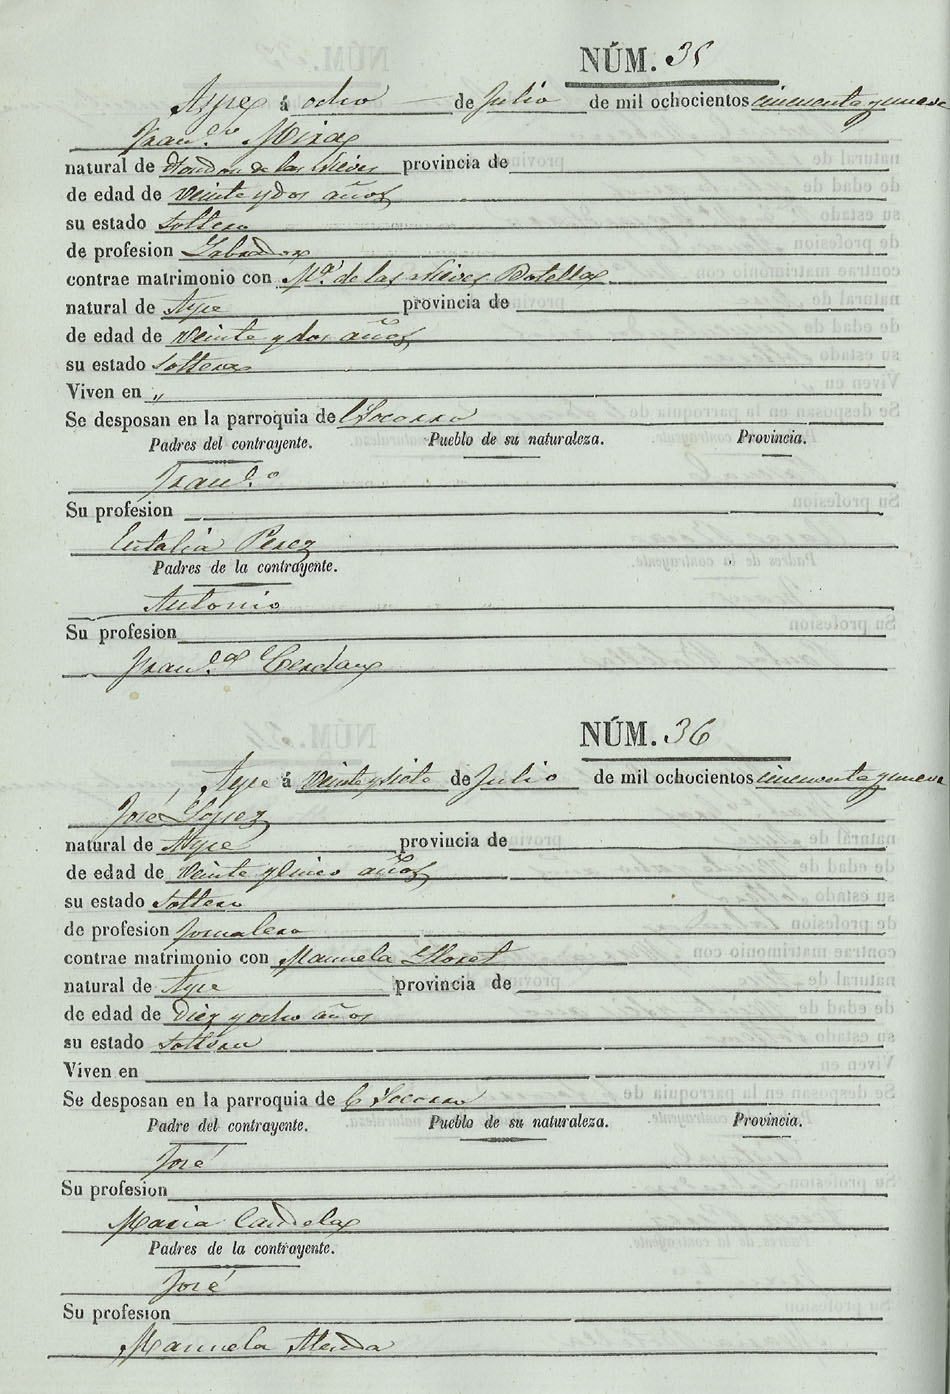 NÚM. 35
Aspe á ocho de Julio de mil ochocientos cincuenta y nueve
Fran.co Mira
natural de Hondon de las Nieves provincia de
de edad de veinte y dos años
su estado soltero
de profesion Labrador
contrae matrimonio con M.a de las Nieves Botella
natural de Aspe provincia de
de edad de veinte y dos años
su estado soltera
Viven en "
Se desposan en la parroquia de l Socorro
Padres del contrayente. Pueblo de su naturaleza. Provincia.
Fran.co
Su profesion
Eutalia Perez
Padres de la contrayente.
Antonio
Su profesion
Fran.ca Cerdan
NÚM. 36
Aspe á veinte y siete de Julio de mil ochocientos cincuenta y nueve
José Lopez
natural de Aspe provincia de
de edad de veinte y cinco años
su estado soltero
de profesion Jornalero
contrae matrimonio con Manuela Lloret
natural de Aspe provincia de
de edad de Diez y ocho años
su estado soltera
Viven en
Se desposan en la parroquia de l Socorro
Padre del contrayente. Pueblo de su naturaleza. Provincia.
José
Su profesion
Maria Candela
Padres de la contrayente.
José
Su profesion
Manuela Alenda